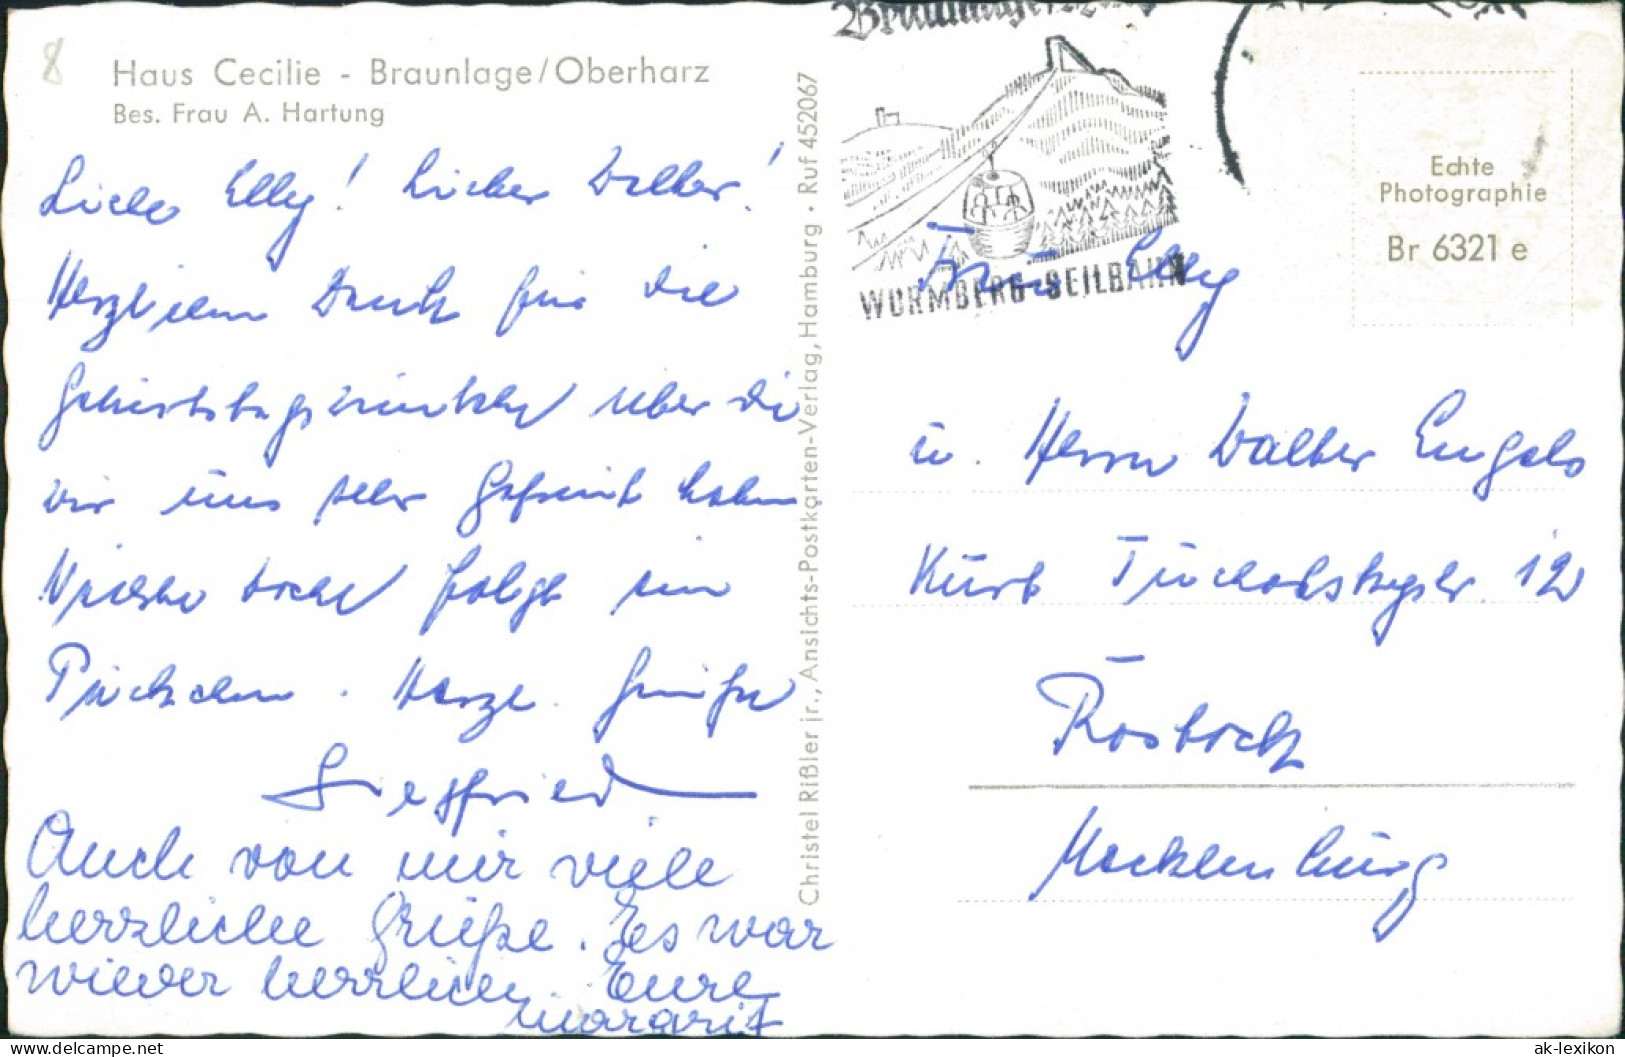 8
Haus Cecilie - Braunlage/Oberharz
Bes. Frau A. Hartung
Liebe Elly! Lieber Walter!
Herzlichen Dank für die
Geburtstagswünsche über die
wir uns sehr gefreut haben
Nächste Woche folgt ein
Päckchen. Herzl. Grüße
Siegfried
Auch von mir viele
herzliche Grüße. Es war
wieder herrlich. Eure
Margrit
Christel Rißler jr., Ansichts-Postkarten-Verlag, Hamburg · Ruf 452067
Braunlage
WURMBERG-SEILBAHN
Echte
Photographie
Br 6321 e
Frau Elly
u. Herrn Walter Engels
Kurt Tucholskystr. 12
Rostock
Mecklenburg
© oldthing.de
ak-lexikon